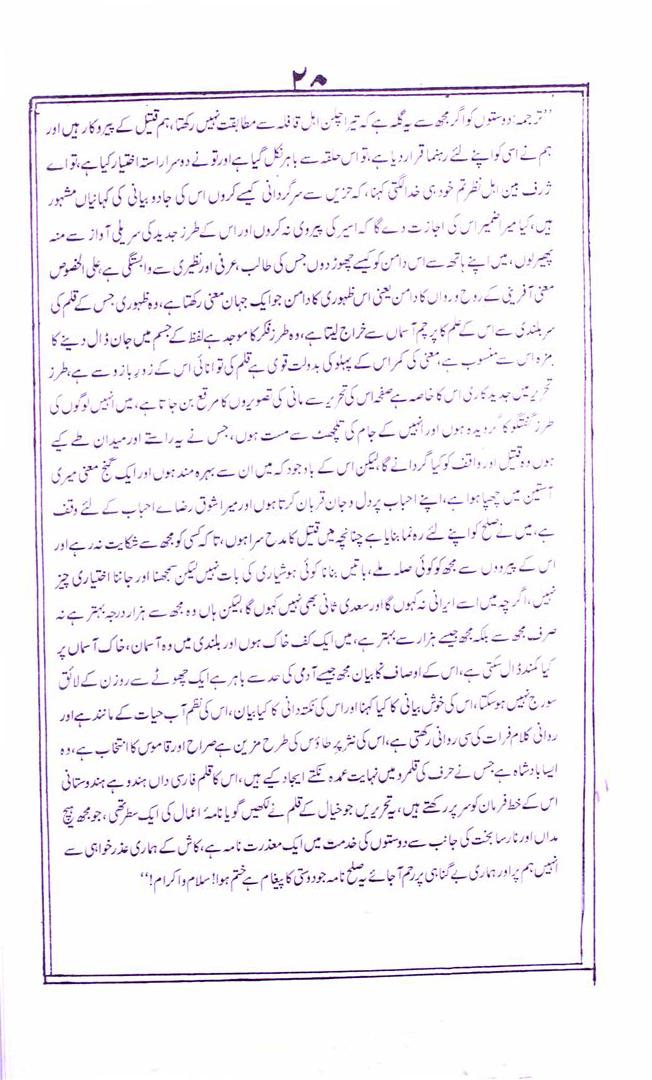 ۲۰
’’ترجمہ: دوستوں کو اگر مجھ سے یہ گلہ ہے کہ تیرا چلن اہل قافلہ سے مطابقت نہیں رکھتا، ہم قتیل کے پیروکار ہیں اور
ہم نے اسی کو اپنے لئے رہنما قرار دیا ہے، تو اس حلقہ سے باہر نکل گیا ہے اور تو نے دوسرا راستہ اختیار کیا ہے، تو اے
ژرف بین اہل نظر تم خود ہی خدا لگتی کہنا، کہ حزیں سے سرگردانی کیسے کروں اس کی جادو بیانی کی کہانیاں مشہور
ہیں، کیا میرا ضمیر اس کی اجازت دے گا کہ اسیر کی پیروی نہ کروں اور اس کے طرز جدید کی سریلی آواز سے منہ
پھیر لوں، میں اپنے ہاتھ سے اس دامن کو کیسے چھوڑ دوں جس کی طالب، عرفی اور نظیری سے وابستگی ہے، علی الخصوص
معنی آفرینی کے روح و رواں کا دامن یعنی اس ظہوری کا دامن جو ایک جہان معنی رکھتا ہے، وہ ظہوری جس کے قلم کی
سر بلندی سے اس کے علم کا پرچم آسماں سے خراج لیتا ہے، وہ طرز فکر کا موجد ہے لفظ کے جسم میں جان ڈال دینے کا
مزہ اس سے منسوب ہے، معنی کی کمر اس کے پہلو کی بدولت قوی ہے قلم کی توانائی اس کے زور بازو سے ہے، طرز
تحریر میں جدید کاری اس کا خاصہ ہے صفحہ اس کی تحریر سے مانی کی تصویروں کا مرقع بن جاتا ہے، میں انہیں لوگوں کی
طرز گفتگو کا گرویدہ ہوں اور انہیں کے جام کی تلچھٹ سے مست ہوں، جس نے یہ راستے اور میدان طے کیے
ہوں وہ قتیل اور واقف کو کیا گردانے گا، لیکن اس کے باوجود کہ میں ان سے بہرہ مند ہوں اور ایک گنج معنی میری
آستین میں چھپا ہوا ہے، اپنے احباب پر دل و جان قربان کرتا ہوں اور میرا شوق رضائے احباب کے لئے وقف
ہے، میں نے صلح کو اپنے لئے رہ نما بنایا ہے چنانچہ میں قتیل کا مدح سرا ہوں، تا کہ کسی کو مجھ سے شکایت نہ رہے اور
اس کے پیروں سے مجھ کو کوئی صلہ ملے، باتیں بنانا کوئی ہوشیاری کی بات نہیں لیکن سمجھنا اور جاننا اختیاری چیز
نہیں، اگر چہ میں اسے ایرانی نہ کہوں گا اور سعدی ثانی بھی نہیں کہوں گا، لیکن ہاں وہ مجھ سے ہزار درجہ بہتر ہے نہ
صرف مجھ سے بلکہ مجھ جیسے ہزار سے بہتر ہے، میں ایک کف خاک ہوں اور بلندی میں وہ آسمان، خاک آسماں پر
کیا کمند ڈال سکتی ہے، اس کے اوصاف کا بیان مجھ جیسے آدمی کی حد سے باہر ہے ایک چھوٹے سے روزن کے لائق
سورج نہیں ہو سکتا، اس کی خوش بیانی کا کیا کہنا اور اس کی نکتہ دانی کا کیا بیان، اس کی نظم آب حیات کے مانند ہے اور
روانی کلام فرات کی سی روانی رکھتی ہے، اس کی نثر پر طاؤس کی طرح مزین ہے صراح اور قاموس کا انتخاب ہے، وہ
ایسا بادشاہ ہے جس نے حرف کی قلمرو میں نہایت عمدہ نکتے ایجاد کیے ہیں، اس کا قلم فارسی داں ہندو ہے ہندوستانی
اس کے خط فرمان کو سر پر رکھتے ہیں، یہ تحریریں جو خیال کے قلم نے لکھیں گویا نامۂ اعمال کی ایک سطر تھی، جو مجھ ہیچ
مداں اور نارسا بخت کی جانب سے دوستوں کی خدمت میں ایک معذرت نامہ ہے، کاش کے ہماری عذر خواہی سے
انہیں ہم پر اور ہماری بے گناہی پر رحم آجائے یہ صلح نامہ جو دوستی کا پیغام ہے ختم ہوا! سلام و اکرام!‘‘